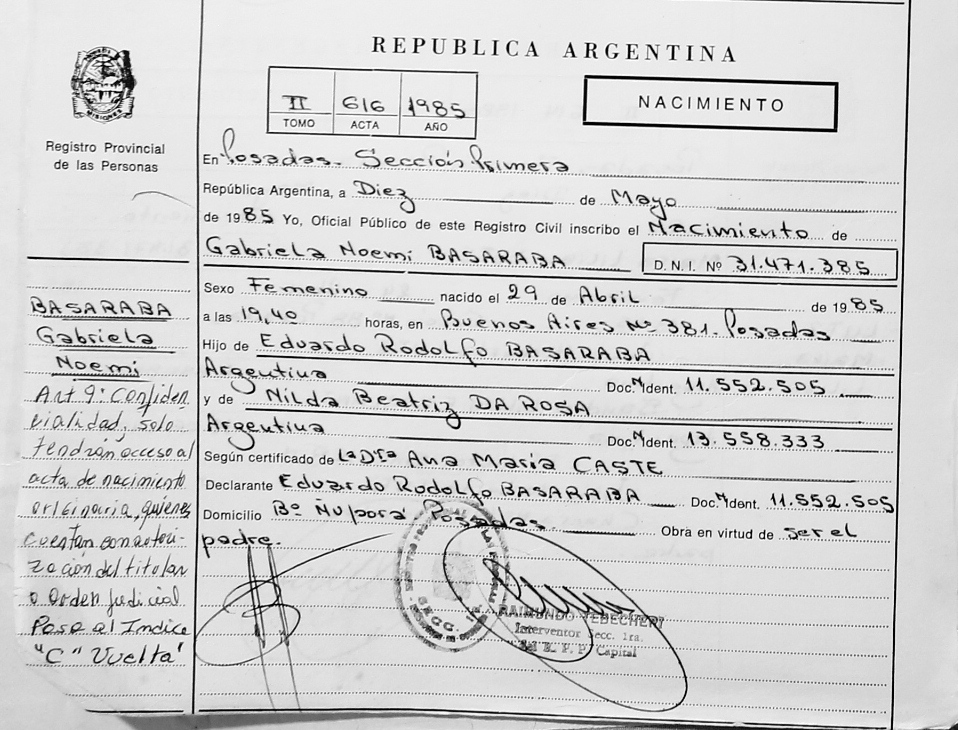 REPUBLICA ARGENTINA
II 616 1985
TOMO ACTA AÑO
NACIMIENTO
MISIONES
Registro Provincial
de las Personas
En Posadas. Sección Primera
República Argentina, a Diez de Mayo
de 1985 Yo, Oficial Público de este Registro Civil inscribo el Nacimiento de
Gabriela Noemi BASARABA D.N.I. Nº 31.471.385
Sexo Femenino nacido el 29 de Abril de 1985
a las 19,40 horas, en Buenos Aires Nº 381. Posadas
Hijo de Eduardo Rodolfo BASARABA
Argentina Doc. Ident. 11.552.505
y de Nilda Beatriz DA ROSA
Argentina Doc. Ident. 13.558.333
Según certificado de La Dra Ana María CASTE
Declarante Eduardo Rodolfo BASARABA Doc. Ident. 11.552.505
Domicilio Bº Ñu porá Posadas Obra en virtud de ser el
padre.
RAIMUNDO
Interventor Secc. 1ra.
del R. P. P. Capital
BASARABA
Gabriela
Noemi
Art 9: Confiden
cialidad, solo
tendrán acceso al
acta de nacimiento
originaria, quienes
cuentan con autori-
zación del titular
o orden judicial
Pase al Indice
"C" Vuelta